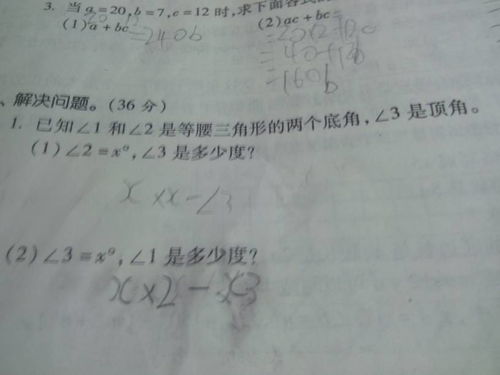 3. 当 a=20,b=7,c=12 时,求下面各式的
(1) a+bc= (2) ac+bc=
=240b
=160b
、解决问题。(36 分)
1. 已知∠1 和∠2 是等腰三角形的两个底角,∠3 是顶角。
(1) ∠2=x°,∠3 是多少度?
x×x-∠3
(2) ∠3=x°,∠1 是多少度?
x×2-x3